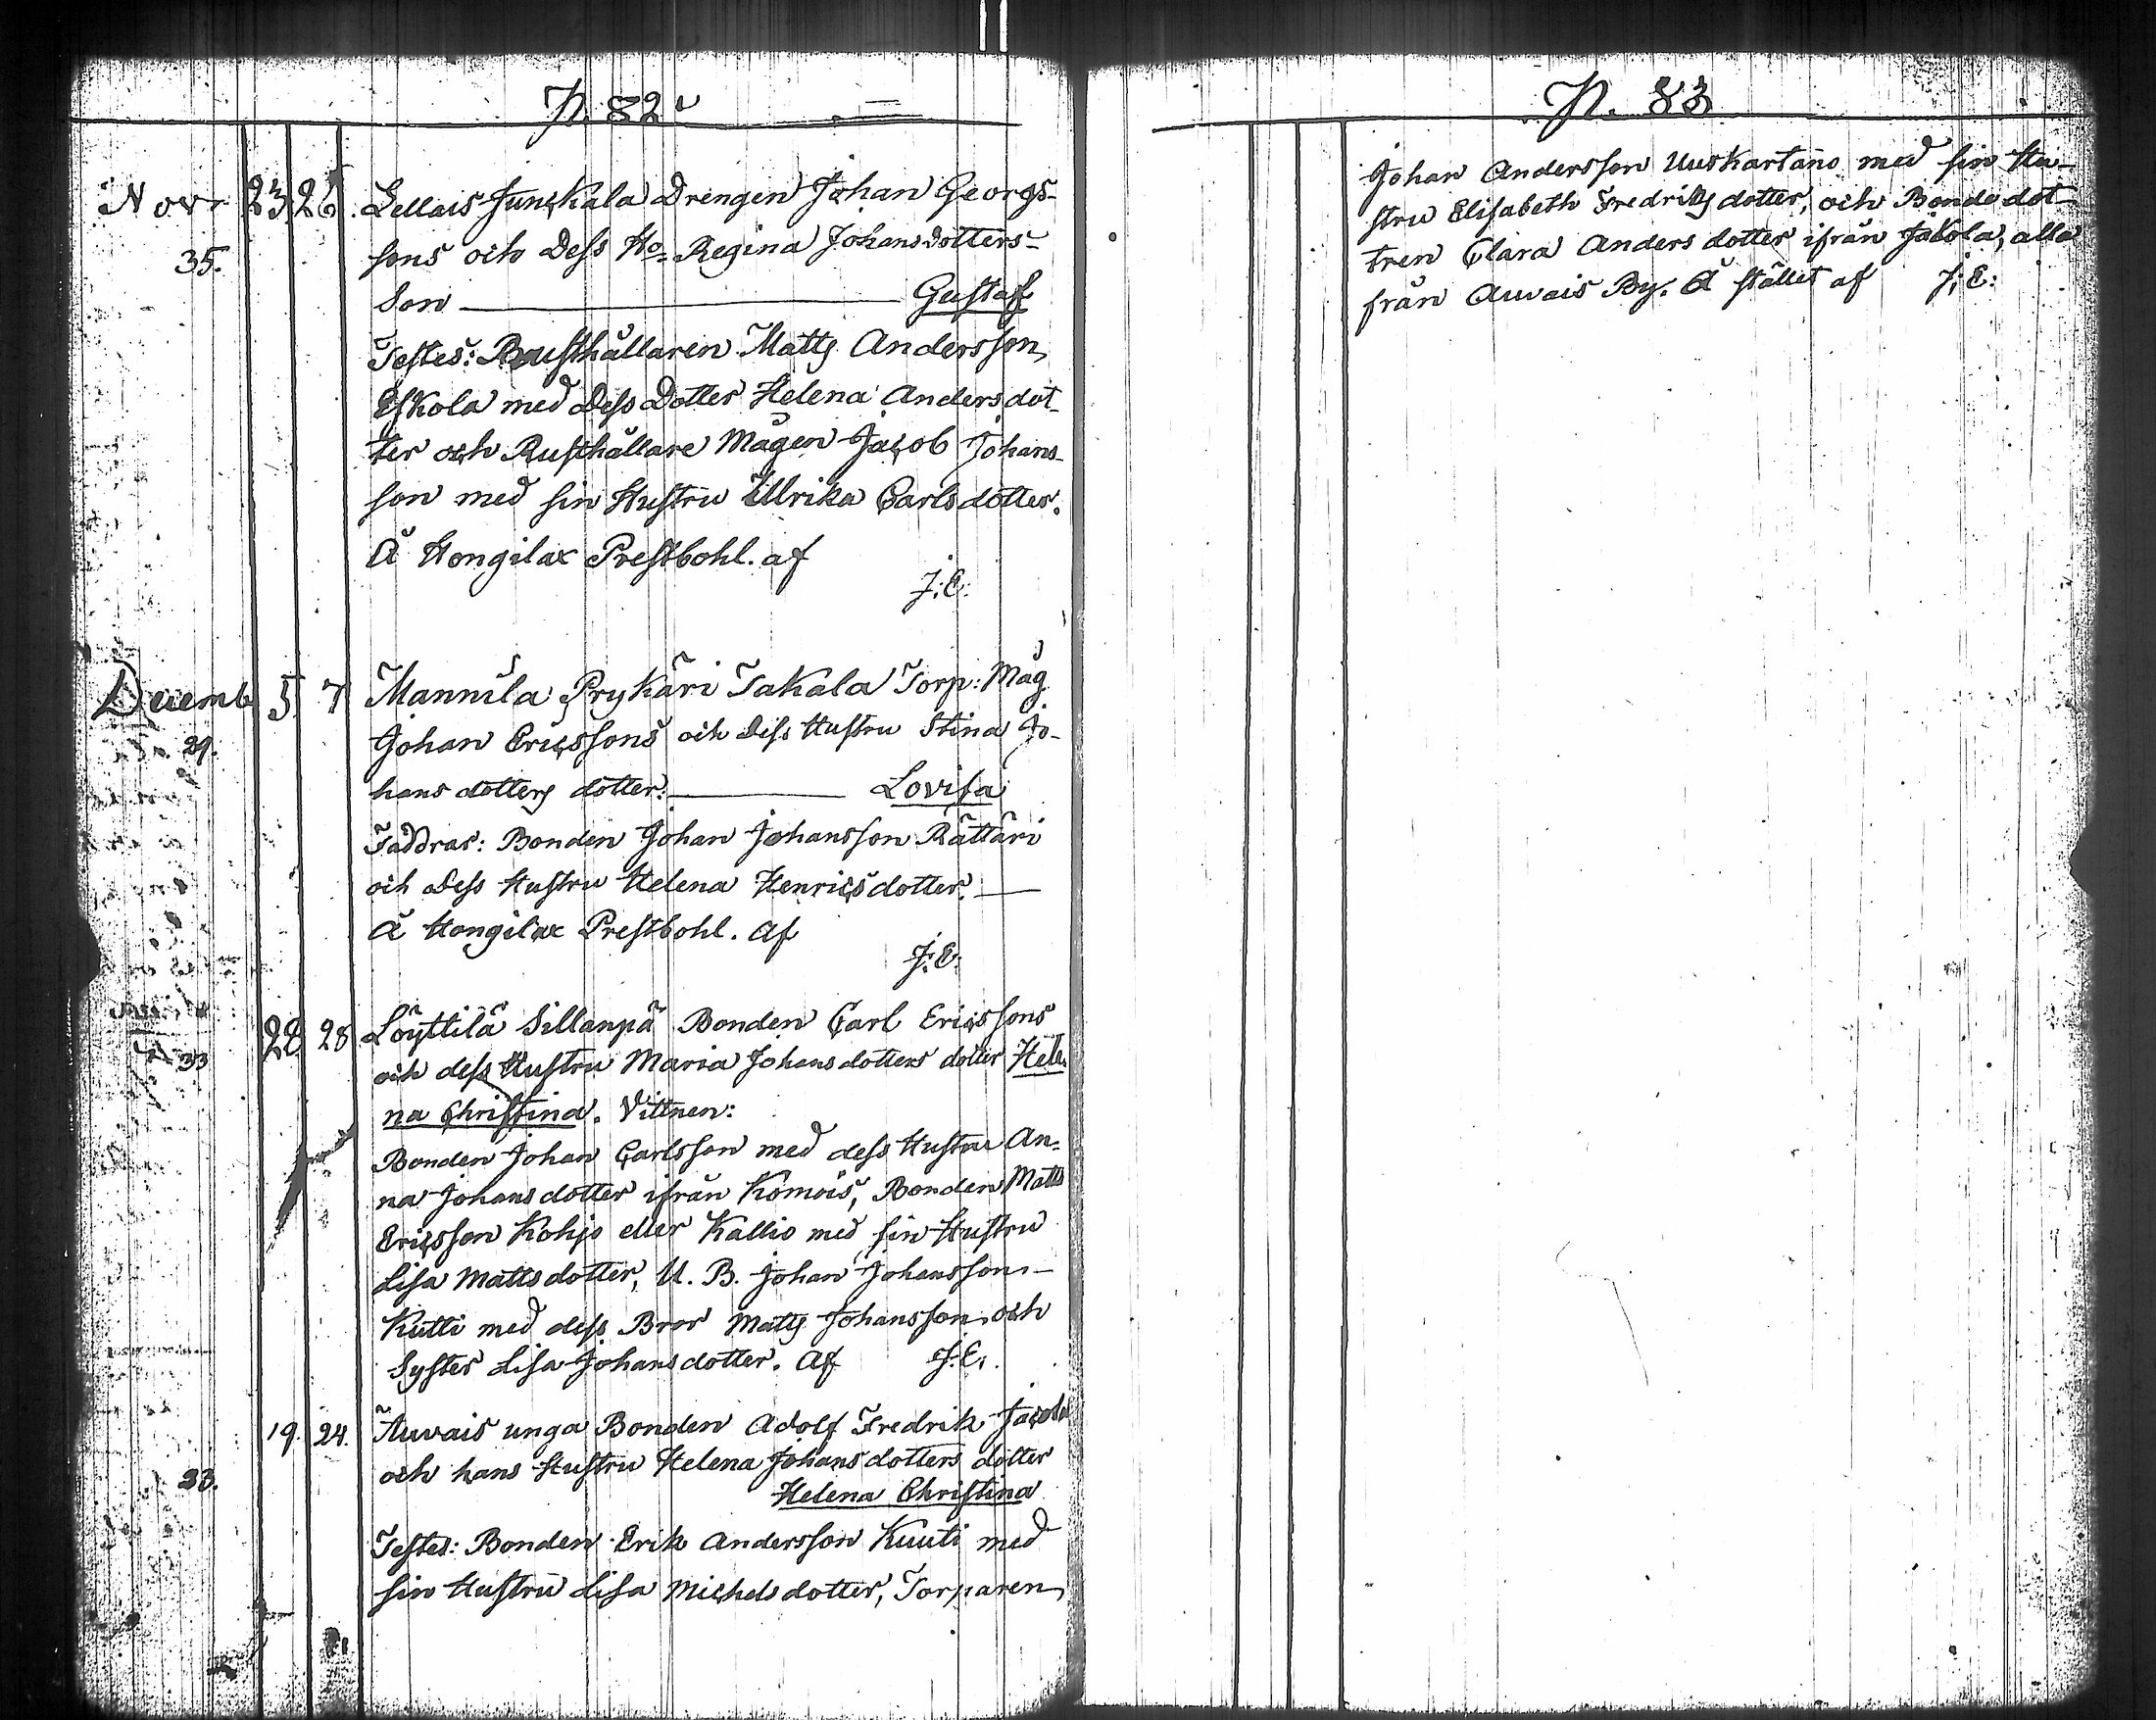 P. 82
Novr 23 26. Lellais Junkkala Drengen Johan Georgs-
35. sons och Dess Ho. Regina Johansdotters
Son — Gustaf
Testes: Rusthållaren Matts Andersson
Eskola med Dess Dotter Helena Andersdot-
ter och Rusthållare Mågen Jacob Johans-
son med sin Hustru Ullrika Carlsdotter.
Å Hongilax Prestbohl. af
J:E:
Decemb 5 7 Mannila Prykäri Takala Torp: Måg
29. Johan Ericssons och dess Hustru Stina Jo-
hansdotters dotter. — Lovisa
Faddrar: Bonden Johan Johansson Rättäri
och Dess Hustru Helena Henricsdotter. —
Å Hongilax Prestbohl. Af
J:E:
28 28 Löyttilä Sillanpä Bonden Carl Ericssons
33 och dess Hustru Maria Johansdotters dotter Hele
na Christina. Vittnen:
Bonden Johan Carlsson med dess Hustru An-
na Johansdotter ifrån Komois, Bonden Matts
Ericsson Kohjo eller Kallio med sin Hustru
Lisa Mattsdotter, U. B. Johan Johansson
Kutti med dess Bror Matts Johansson och
Syster Lisa Johansdotter. Af J:E:
19. 24. Auvais unga Bonden Adolf Fredrik Jacobs
och hans Hustru Helena Johansdotters dotter
33. Helena Christina
Testes: Bonden Erik Andersson Kuuti med
sin Hustru Lisa Michelsdotter, Torparen
P. 83
Johan Andersson Uuskartano med sin Hu-
stru Elisabeth Fredriksdotter, och Bondedot
tren Clara Andersdotter ifrån Jakola, alla
från Auvais By. Å stället af J:E: